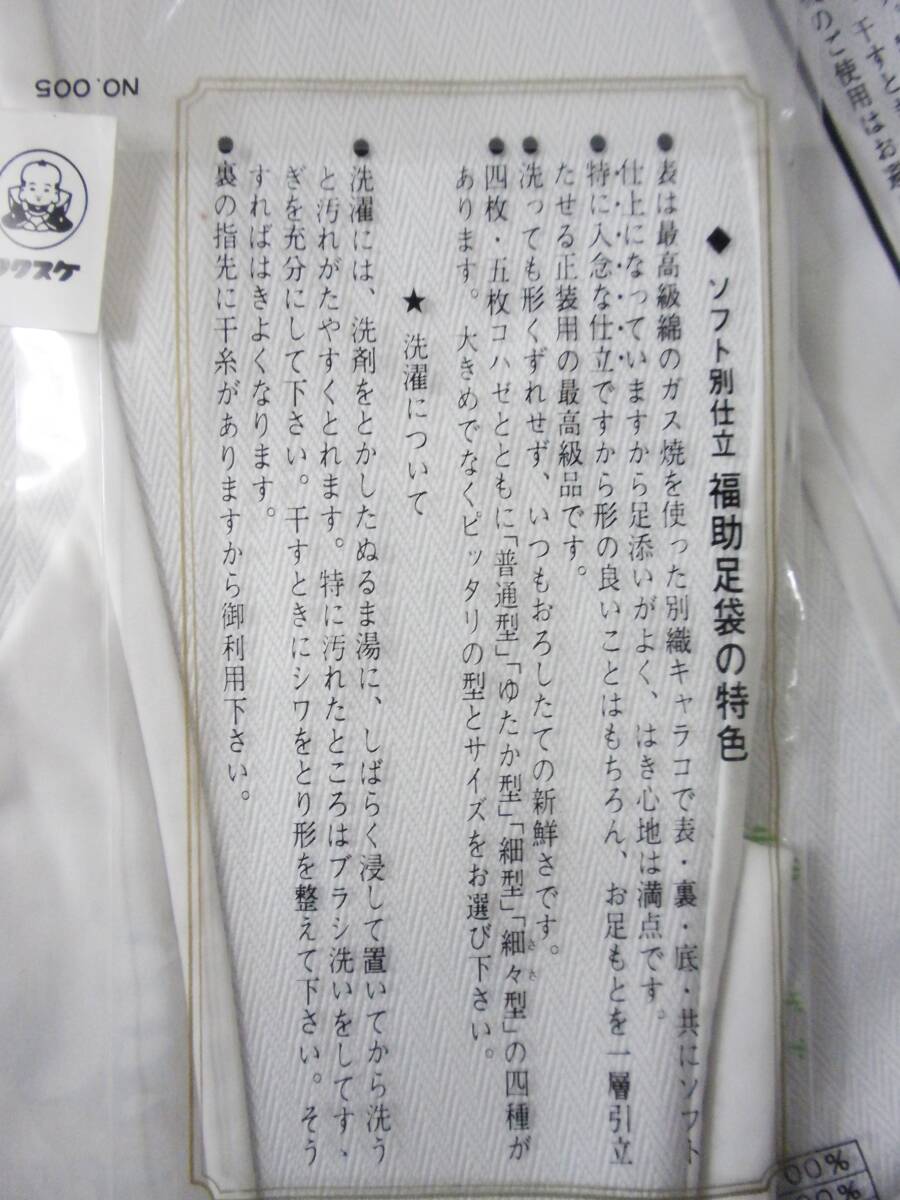 ◆ ソフト別仕立 福助足袋の特色
● 表は最高級綿のガス焼を使った別織キャラコで表・裏・底・共にソフト
仕上になっていますから足添いがよく、はき心地は満点です。
● 特に入念な仕立ですから形の良いことはもちろん、お足もとを一層引立
たせる正装用の最高級品です。
● 洗っても形くずれせず、いつもおろしたての新鮮さです。
● 四枚・五枚コハゼとともに「普通型」「ゆたか型」「細型」「細々型」の四種が
あります。大きめでなくピッタリの型とサイズをお選び下さい。
★ 洗濯について
● 洗濯には、洗剤をとかしたぬるま湯に、しばらく浸して置いてから洗う
と汚れがたやすくとれます。特に汚れたところはブラシ洗いをしてすゝ
ぎを充分にして下さい。干すときにシワをとり形を整えて下さい。そう
すればはきよくなります。
● 裏の指先に干糸がありますから御利用下さい。
NO.005
フクスケ
干すとき
のご使用はお
00%
%